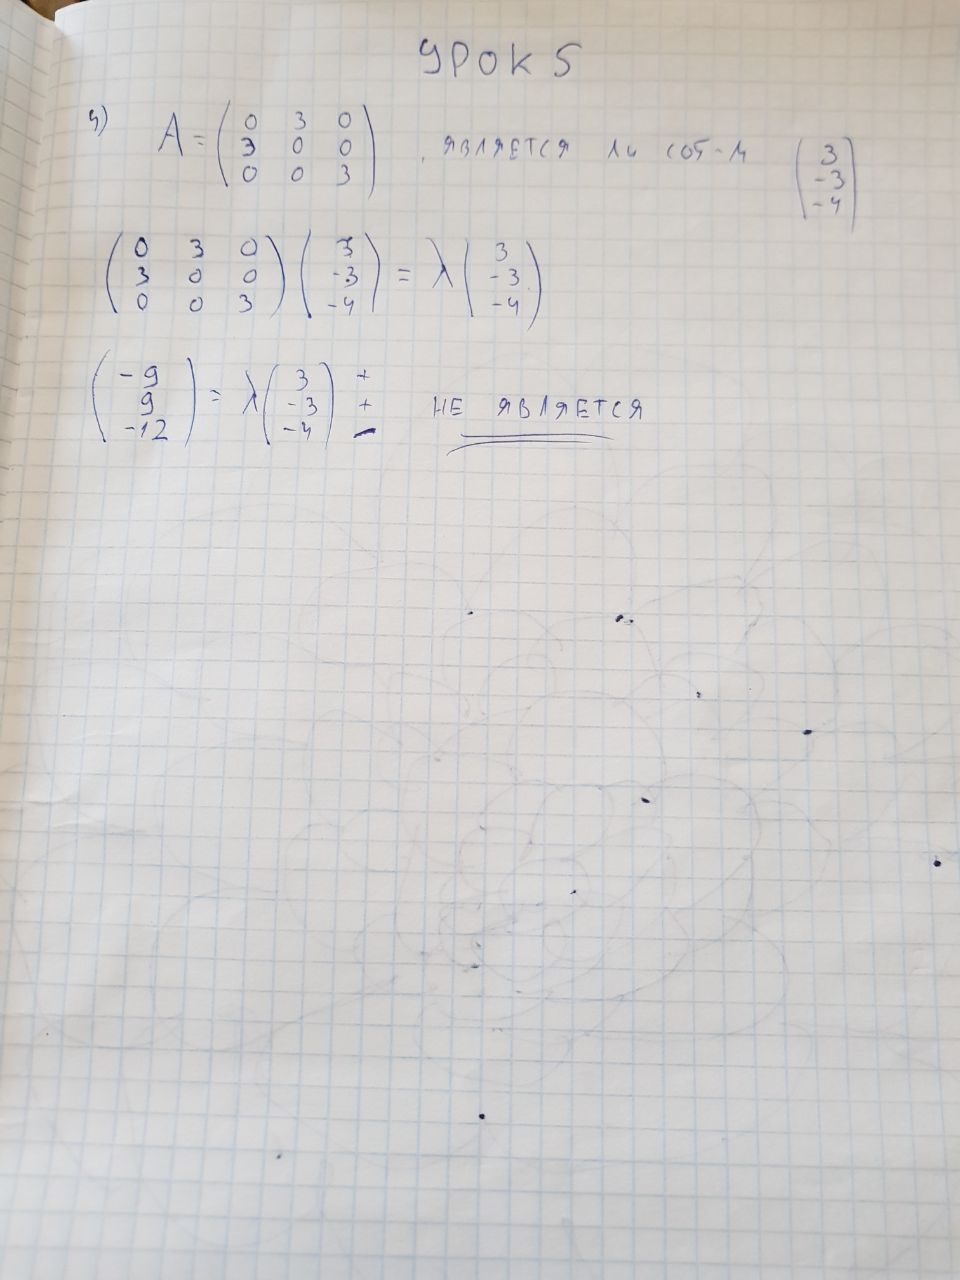 УРОК 5
4) A = ( 0 3 0 ; 3 0 0 ; 0 0 3 ) , ЯВЛЯЕТСЯ ЛИ СОБ-М ( 3 ; -3 ; -4 )
( 0 3 0 ; 3 0 0 ; 0 0 3 ) ( 3 ; -3 ; -4 ) = λ ( 3 ; -3 ; -4 )
( -9 ; 9 ; -12 ) = λ ( 3 ; -3 ; -4 ) + + - НЕ ЯВЛЯЕТСЯ